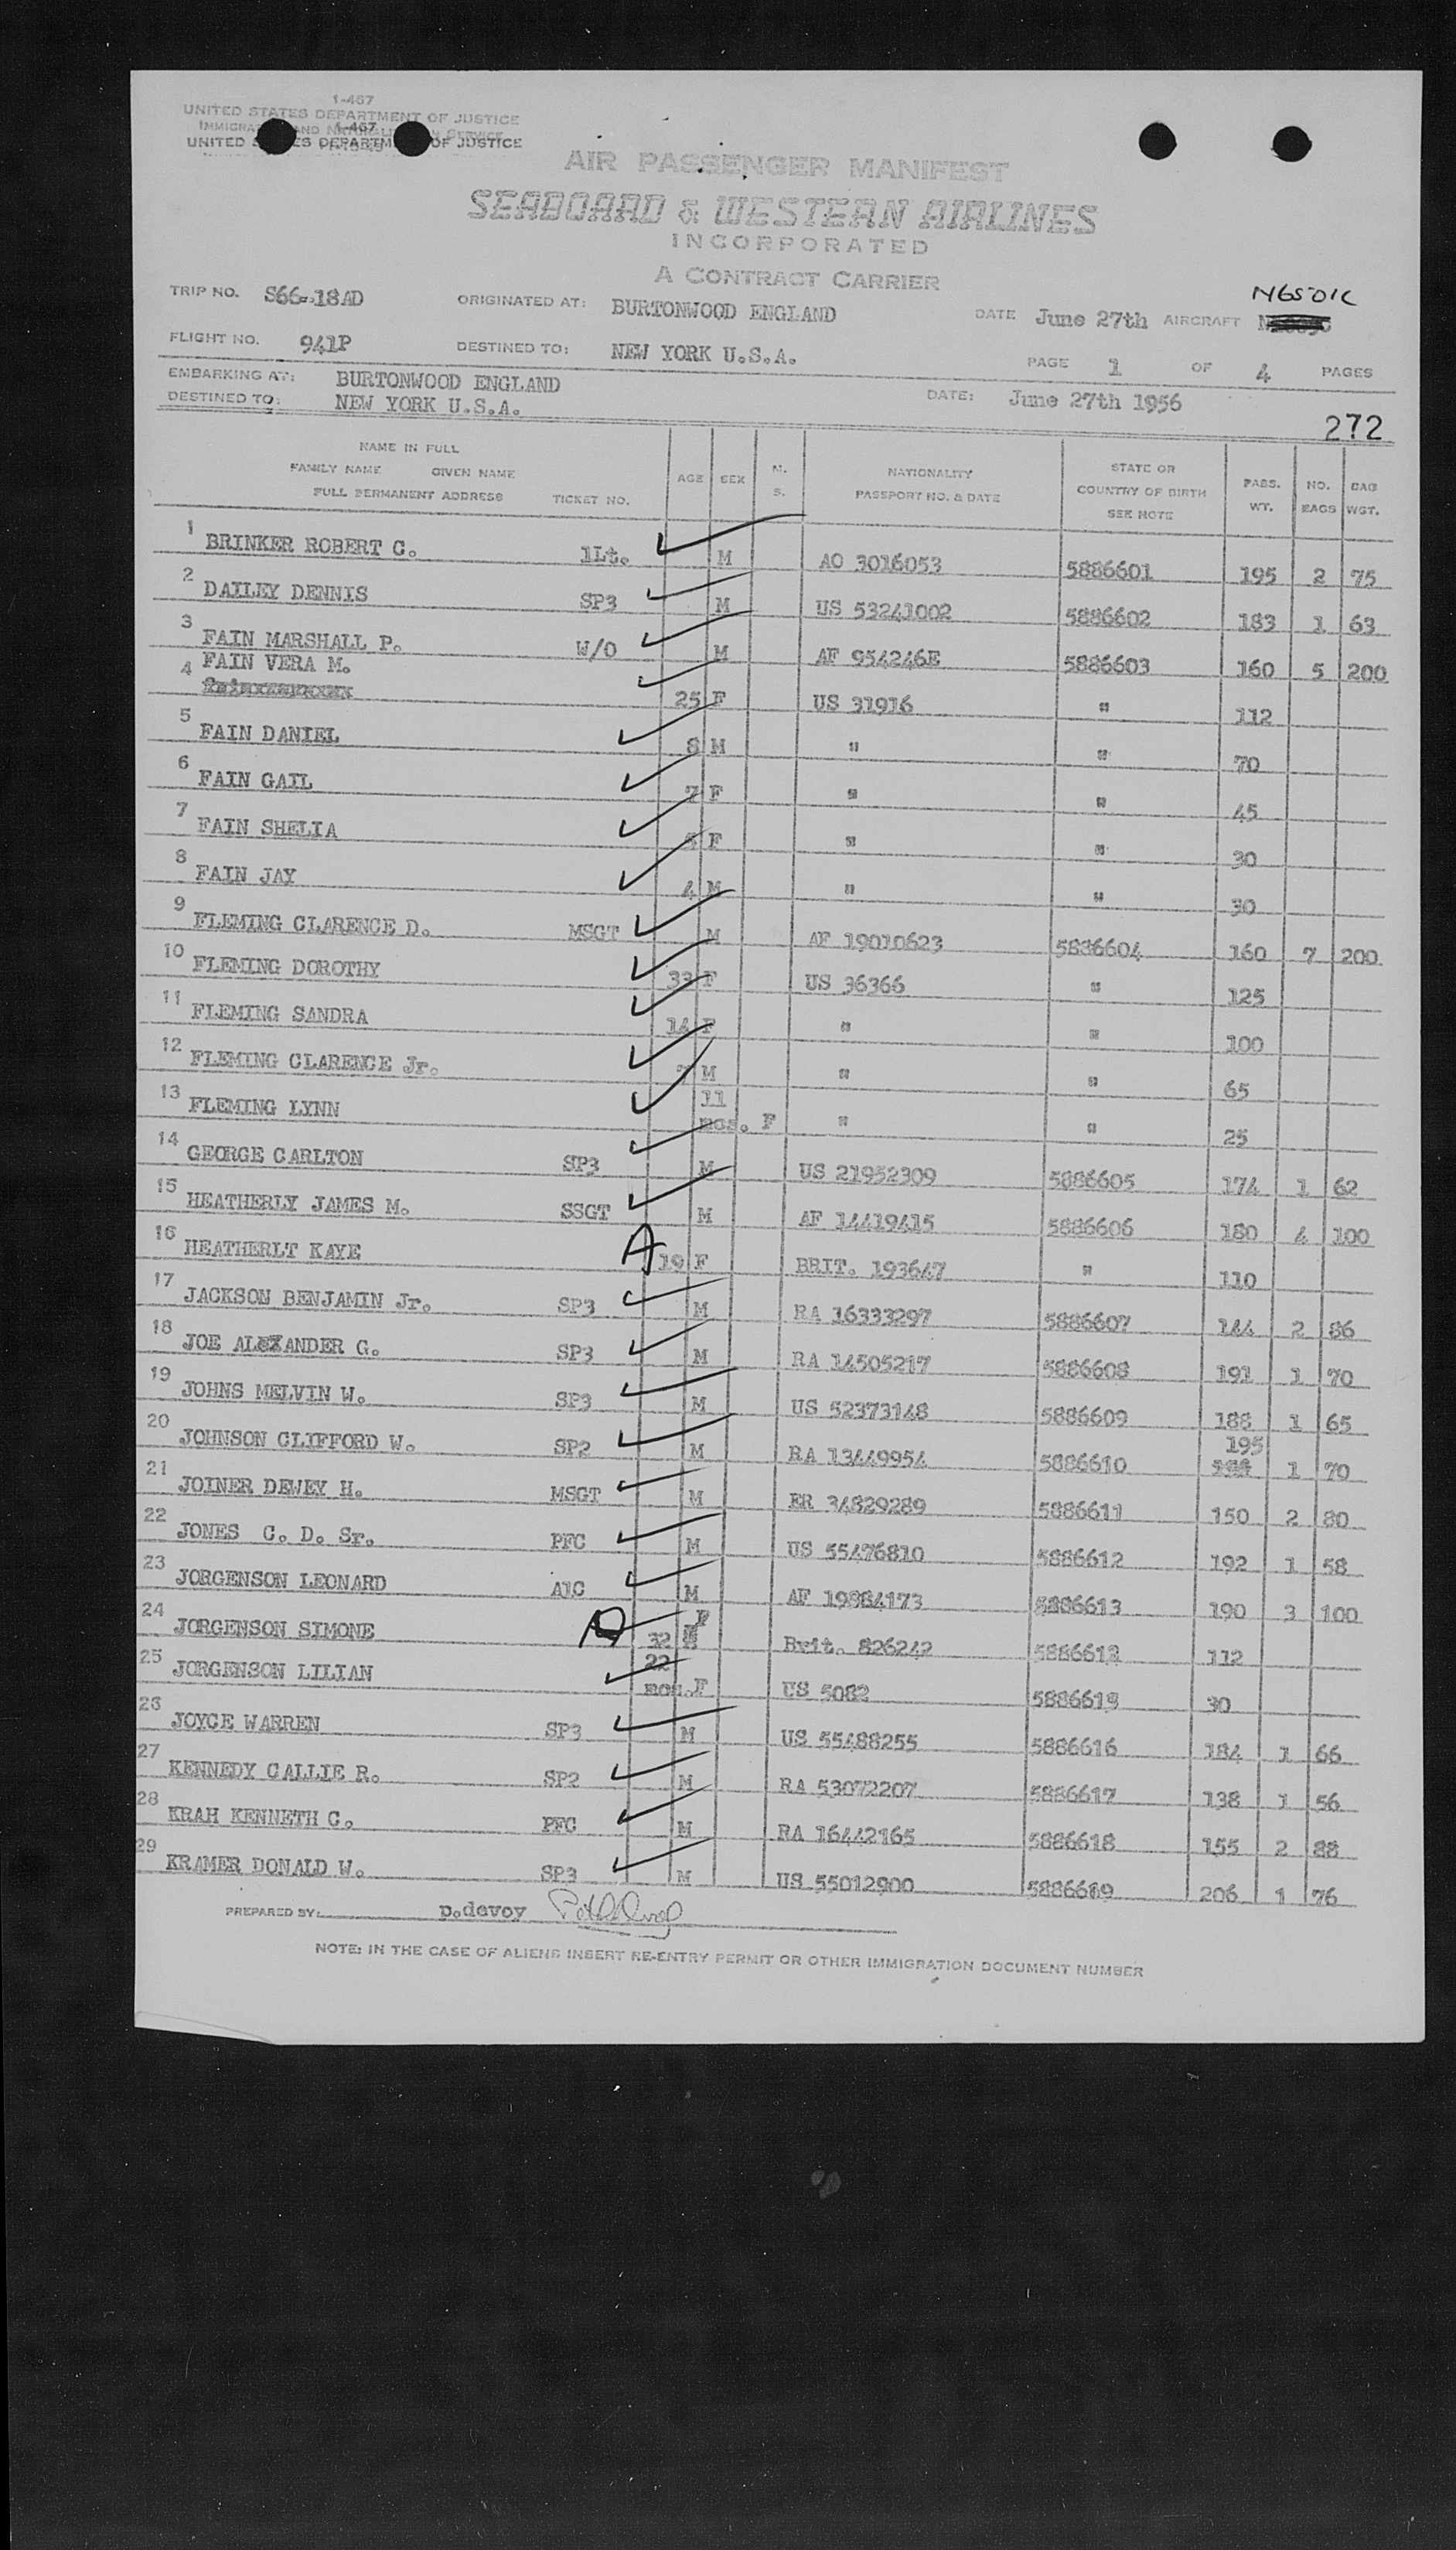 1-467
UNITED STATES DEPARTMENT OF JUSTICE
1-467
UNITED DEPARTM OF JUSTICE
AIR PASSENGER MANIFEST
SEABOARD & WESTERN AIRLINES
INCORPORATED
A CONTRACT CARRIER
N6501C
TRIP NO. S66-18AD ORIGINATED AT: BURTONWOOD ENGLAND DATE June 27th AIRCRAFT
FLIGHT NO. 941P DESTINED TO: NEW YORK U.S.A. PAGE 1 OF 4 PAGES
EMBARKING AT: BURTONWOOD ENGLAND DATE: June 27th 1956
DESTINED TO: NEW YORK U.S.A.
272
NAME IN FULL
FAMILY NAME GIVEN NAME
FULL PERMANENT ADDRESS TICKET NO. AGE SEX M. S. NATIONALITY PASSPORT NO. & DATE STATE OR COUNTRY OF BIRTH SEE NOTE PASS. WT. NO. BAGS BAG WGT.
1 BRINKER ROBERT C. 1Lt. M AO 3016053 5886601 195 2 75
2 DAILEY DENNIS SP3 M US 53241002 5886602 183 1 63
3 FAIN MARSHALL P. W/O M AF 954246E 5886603 160 5 200
4 FAIN VERA M. 25 F US 31916 " 112
5 FAIN DANIEL 8 M " " 70
6 FAIN GAIL 7 F " " 45
7 FAIN SHELIA F " " 30
8 FAIN JAY 4 M " " 30
9 FLEMING CLARENCE D. MSGT M AF 19010623 5886604 160 7 200
10 FLEMING DOROTHY 33 F US 36366 " 125
11 FLEMING SANDRA 14 F " " 100
12 FLEMING CLARENCE Jr. M " " 65
13 FLEMING LYNN 11 mos. F " " 25
14 GEORGE CARLTON SP3 M US 21952309 5886605 174 1 62
15 HEATHERLY JAMES M. SSGT M AF 14419415 5886606 180 4 100
16 HEATHERLT KAYE A 19 F BRIT. 193647 " 110
17 JACKSON BENJAMIN Jr. SP3 M RA 16333297 5886607 144 2 86
18 JOE ALEXANDER G. SP3 M RA 14505217 5886608 191 1 70
19 JOHNS MELVIN W. SP3 M US 52373148 5886609 188 1 65
20 JOHNSON CLIFFORD W. SP2 M RA 13449954 5886610 195 1 70
21 JOINER DEWEY H. MSGT M ER 34829289 5886611 150 2 80
22 JONES C. D. Sr. PFC M US 55476810 5886612 192 1 58
23 JORGENSON LEONARD A1C M AF 19884173 5886613 190 3 100
24 JORGENSON SIMONE A 32 F Brit. 826242 5886613 112
25 JORGENSON LILIAN 22 mos. F US 5082 30
26 JOYCE WARREN SP3 M US 55488255 5886616 184 1 66
27 KENNEDY CALLIE R. SP2 M RA 53072207 5886617 138 1 56
28 KRAH KENNETH C. PFC M RA 16442165 5886618 155 2 88
29 KRAMER DONALD W. SP3 M US 55012900 5886619 206 1 76
PREPARED BY: p.devoy
NOTE: IN THE CASE OF ALIENS INSERT RE-ENTRY PERMIT OR OTHER IMMIGRATION DOCUMENT NUMBER